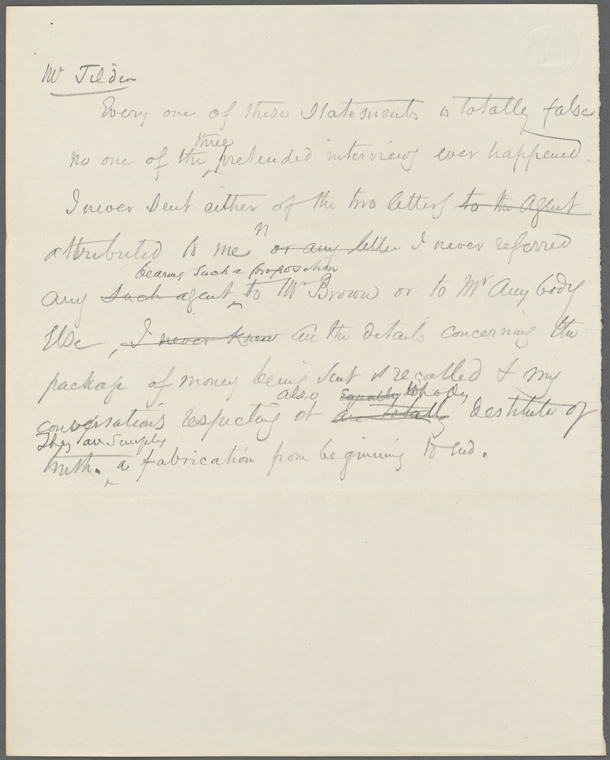 Mr Tilden
Every one of these statements is totally false
three
no one of the pretended interviews ever happened.
I never sent either of the two letters to the Agent
attributed to me or any letter I never referred
bearing such a proposition
any such agent to Mr Brown or to Mr Any body
Else, I never knew All the details concerning the
package of money being sent & recalled & my
also equally wholly
conversations respecting it are totally destitute of
They are simply
truth. a fabrication from beginning to end.